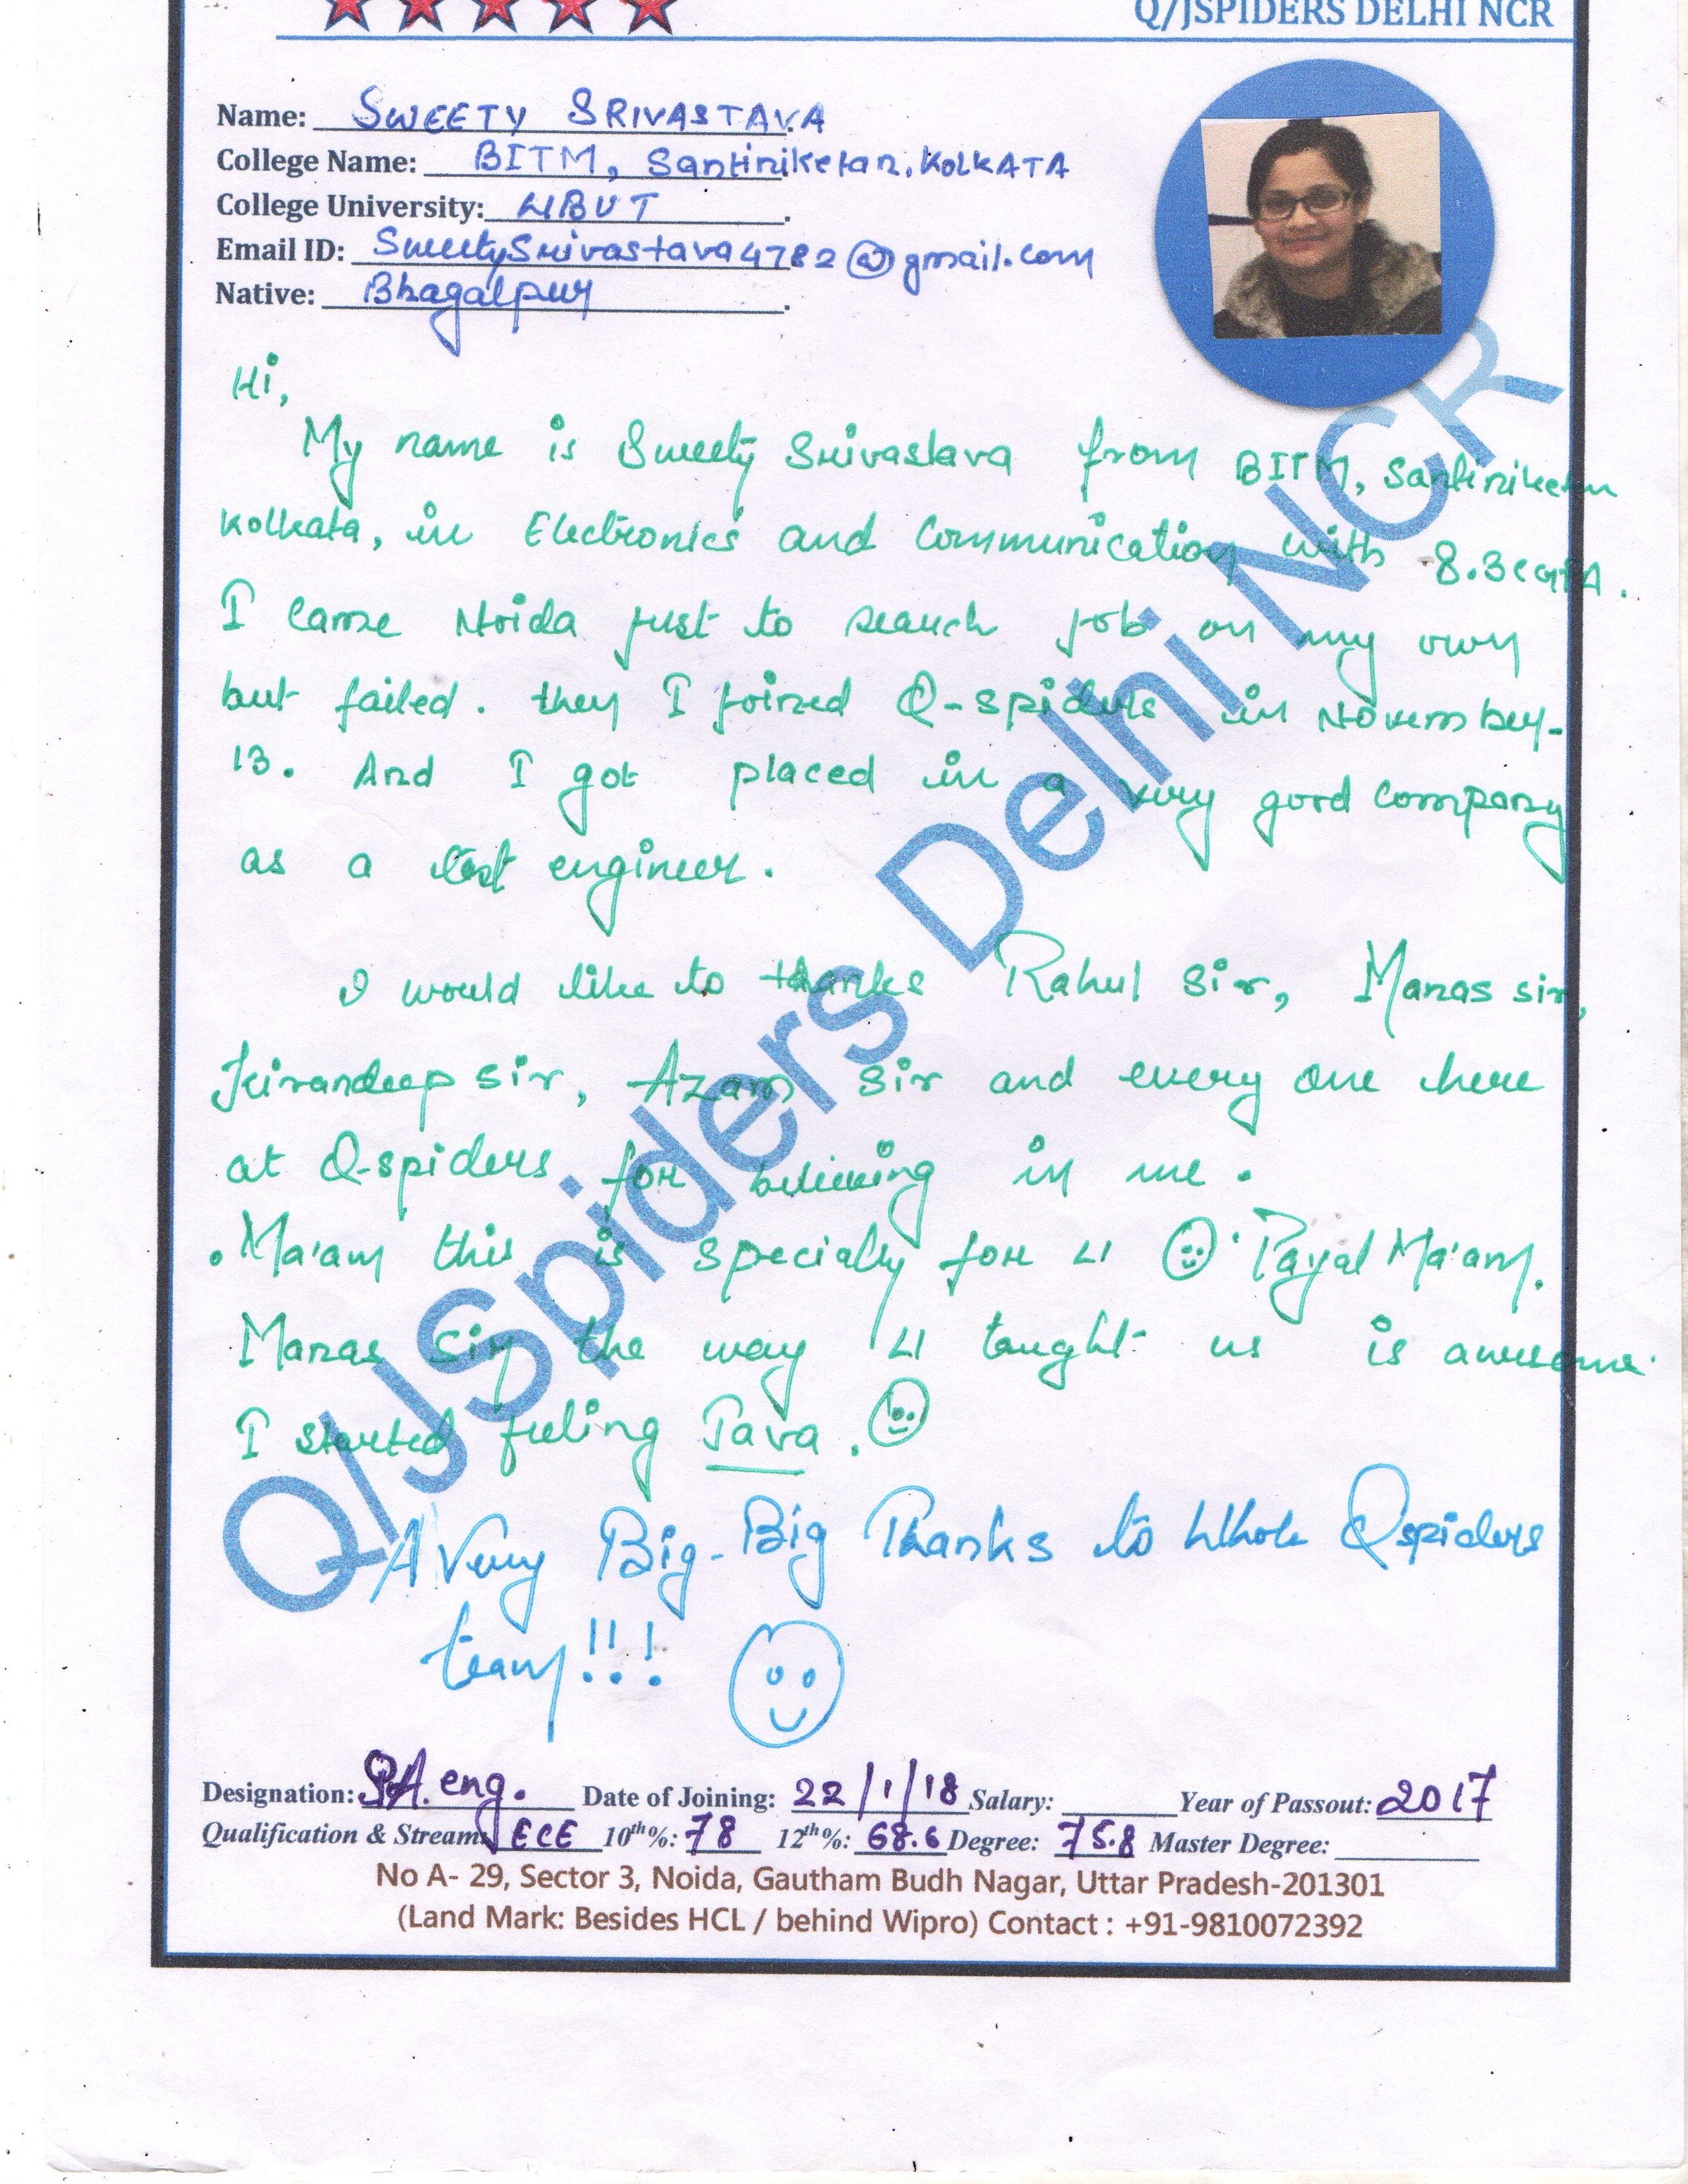 Q/JSPIDERS DELHI NCR
Name: SWEETY SRIVASTAVA
College Name: BITM, Santiniketan, KOLKATA
College University: WBUT
Email ID: SweetySrivastava4782@gmail.com
Native: Bhagalpur
Hi,
My name is Sweety Srivastava from BITM, Santiniketan
Kolkata, in Electronics and Communication with 8.3CGPA.
I came Noida just to search job on my own
but failed. then I joined Q-spiders in November-
13. And I got placed in a very good company
as a test engineer.
I would like to thanks Rahul Sir, Manas sir,
Kirandeep sir, Azam Sir and every one here
at Q-spiders for believing in me.
. Ma'am this is specially for U Payal Ma'am.
Manas Sir the way U taught us is awesome.
I started feeling Java.
A Very Big-Big Thanks to Whole Qspiders
team!!!
Q/JSpiders Delhi NCR
Designation: eng. Date of Joining: 22/1/18 Salary: Year of Passout: 2017
Qualification & Stream: ECE 10th%: 78 12th%: 68.6 Degree: 75.8 Master Degree:
No A- 29, Sector 3, Noida, Gautham Budh Nagar, Uttar Pradesh-201301
(Land Mark: Besides HCL / behind Wipro) Contact : +91-9810072392